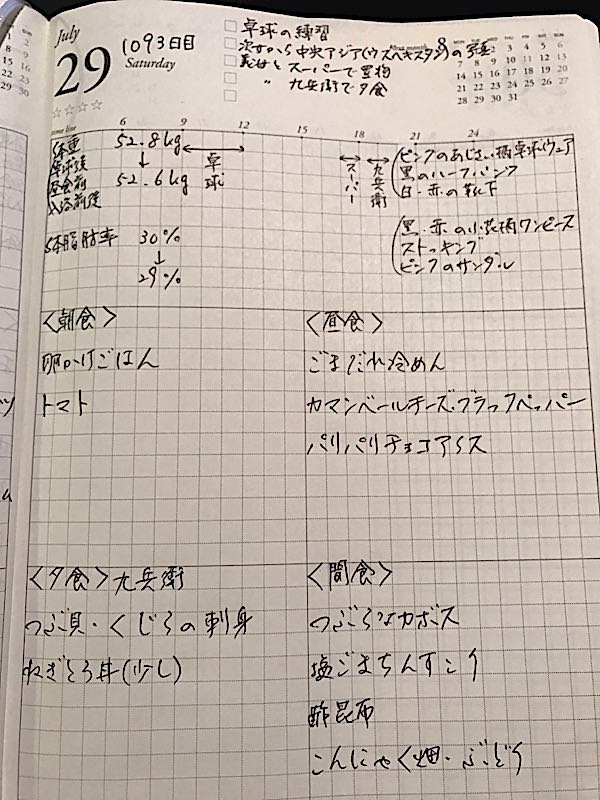 July
29
1093日目
Saturday
卓球の練習
次女から中央アジア(ウズベキスタン)の
義母とスーパーで買物
〃 九兵衛で夕食
8
MON TUE WED THU FRI SAT SUN
1 2 3 4 5 6
7 8 9 10 11 12 13
14 15 16 17 18 19 20
21 22 23 24 25 26 27
28 29 30 31
time line
6 9 12 15 18 21 24
体重 52.8kg
卓球後 ↓
昼食前 52.6kg
入浴前後
卓球
スーパー
九兵衛
ピンクのあじさい柄卓球ウェア
黒のハーフパンツ
白・赤の靴下
黒・赤の小花柄ワンピース
ストッキング
ピンクのサンダル
体脂肪率 30%
↓
29%
<朝食>
卵かけごはん
トマト
<昼食>
ごまだれ冷めん
カマンベールチーズ・ブラックペッパー
パリパリチョコアイス
<夕食>九兵衛
つぶ貝・くじらの刺身
ねぎとろ丼(少し)
<間食>
つぶらなカボス
塩ごまちんすこう
酢昆布
こんにゃく畑・ぶどう